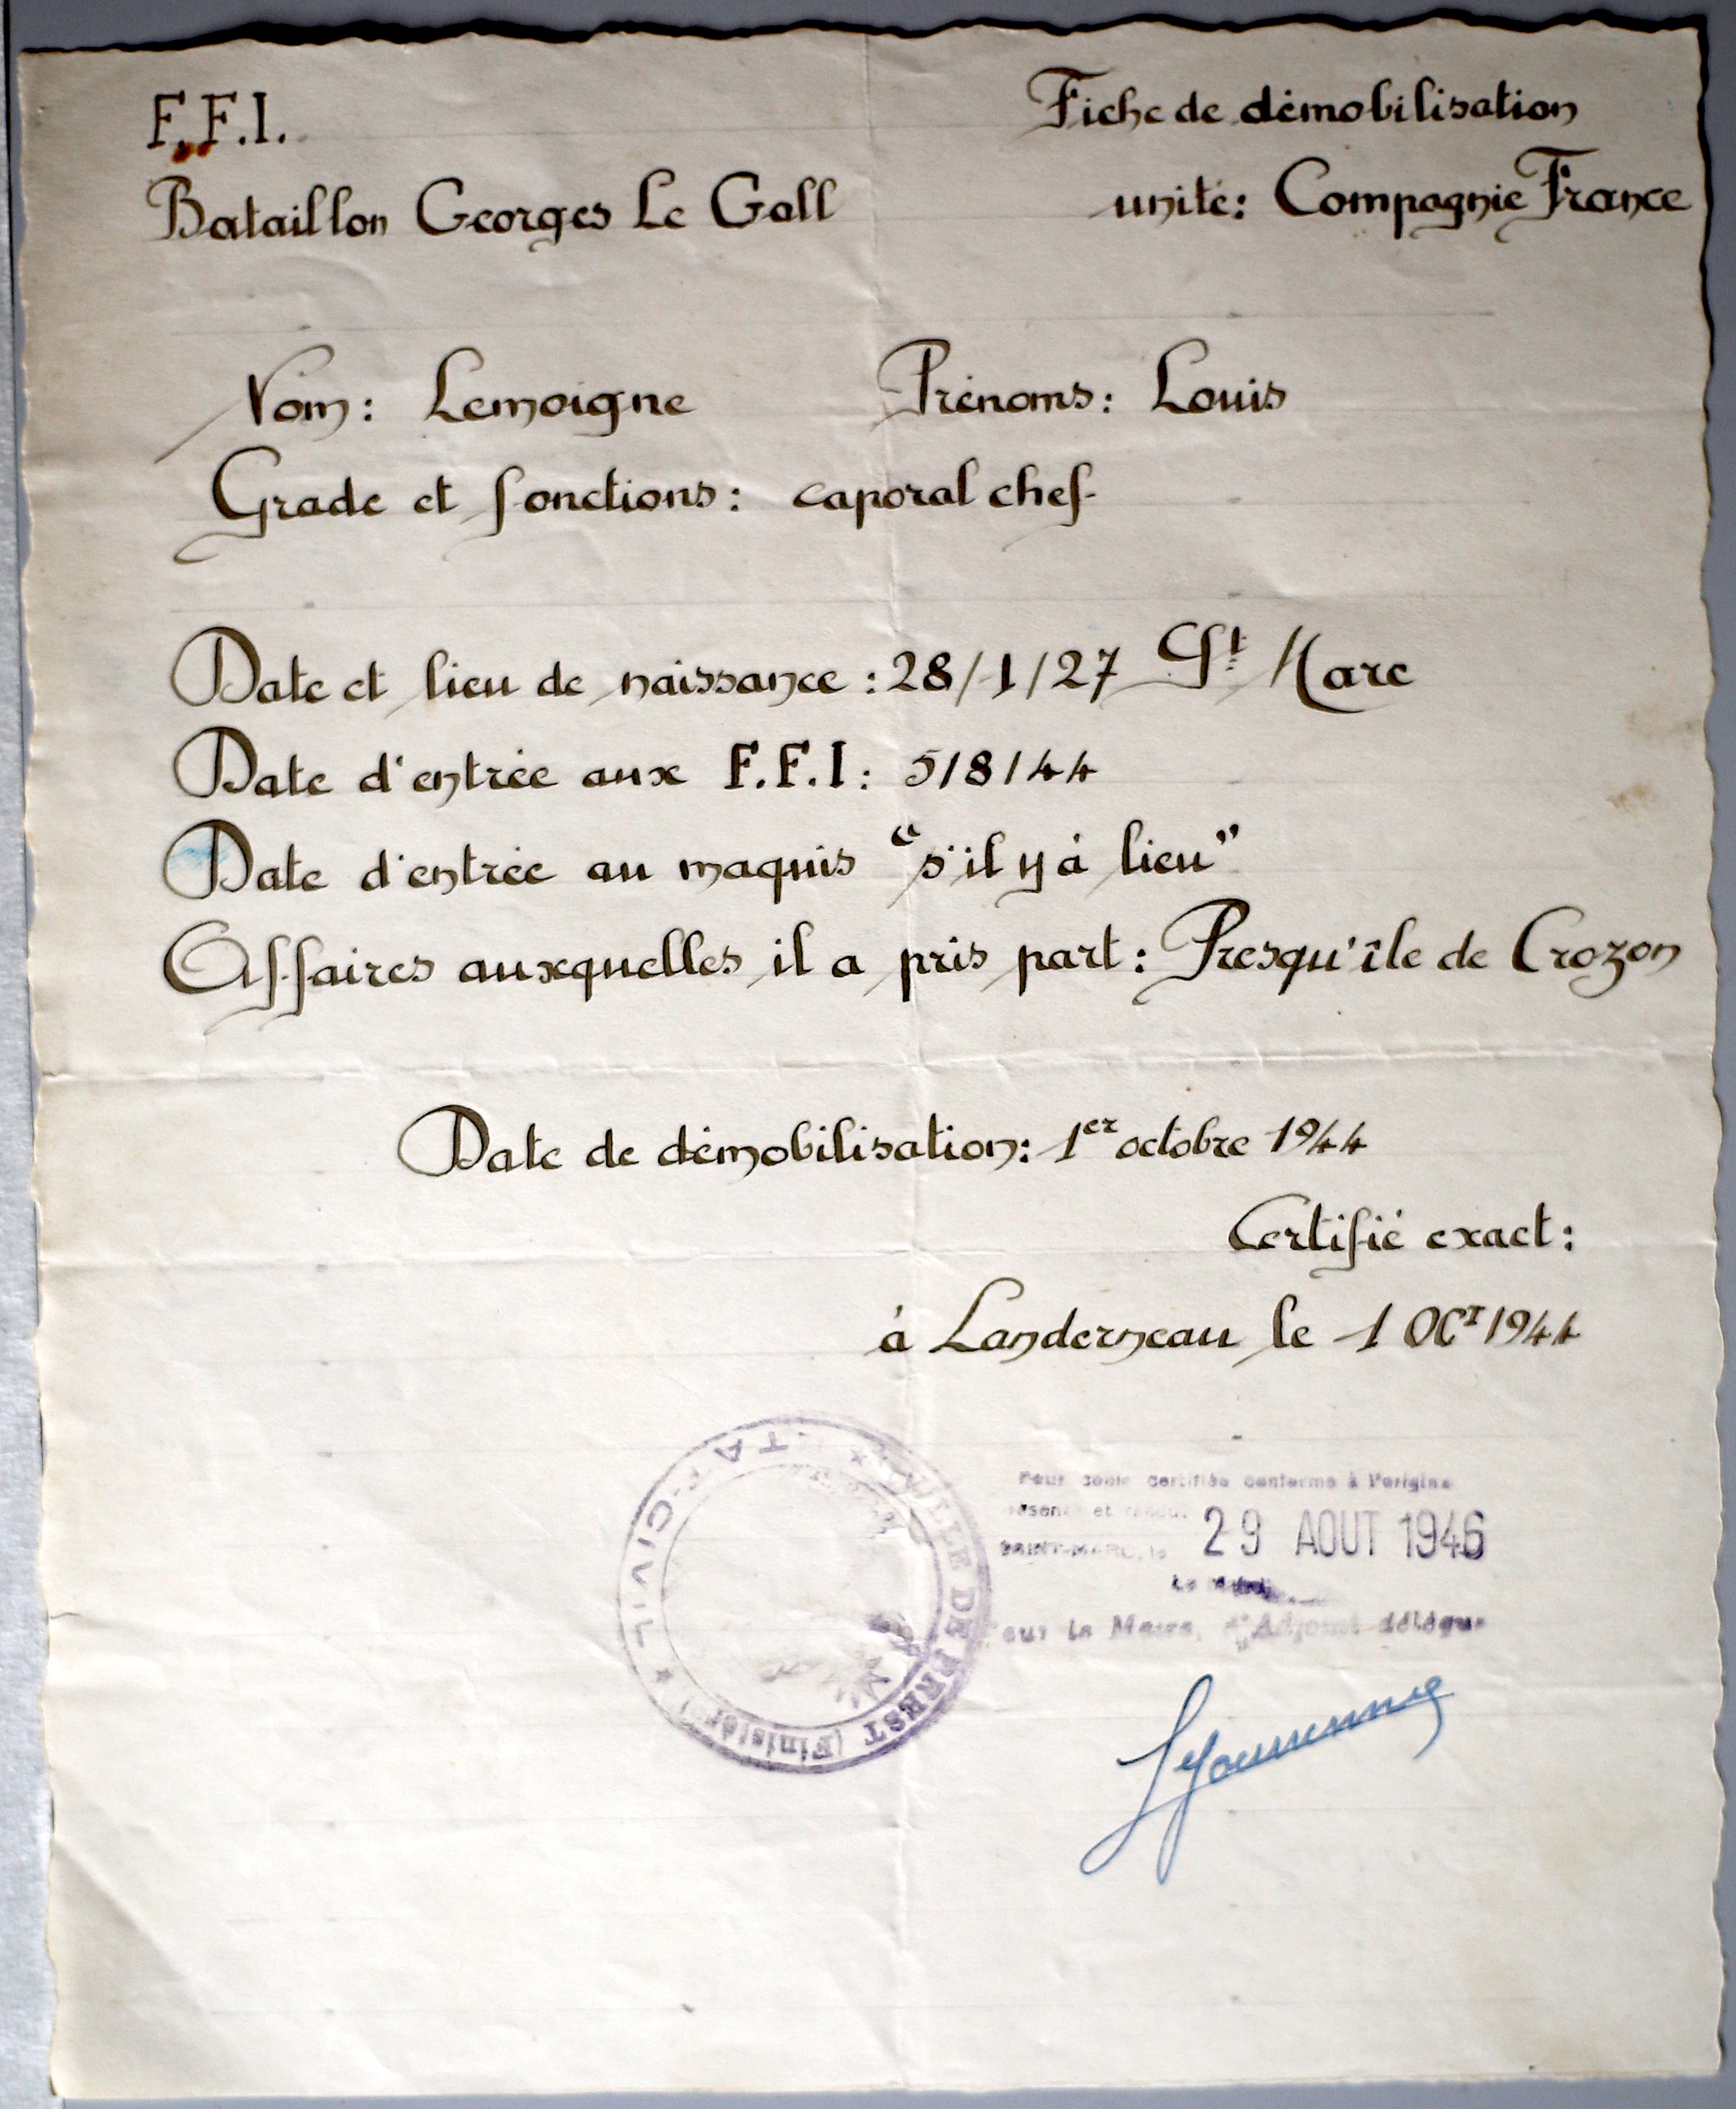 F.F.I.
Fiche de démobilisation
Bataillon Georges Le Gall
unité: Compagnie France
Nom: Lemoigne Prénoms: Louis
Grade et fonctions: caporal chef
Date et lieu de naissance: 28/1/27 St Marc
Date d'entrée aux F.F.I: 5/8/44
Date d'entrée au maquis "s'il y à lieu"
Affaires auxquelles il a pris part: Presqu'île de Crozon
Date de démobilisation: 1er octobre 1944
Certifié exact:
à Landerneau le 1 OCT 1944
VILLE DE BREST (Finistère) * ETAT-CIVIL *
Pour copie certifiée conforme à l'origine
et
SAINT-MARC, le 29 AOUT 1946
Le
Pour le Maire, l'Adjoint délégué